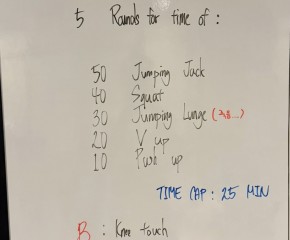 5 Rounds for time of :
50 Jumping Jack
40 Squat
30 Jumping Lunge
20 V up
10 Push up
TIME CAP : 25 MIN
B : Knee touch